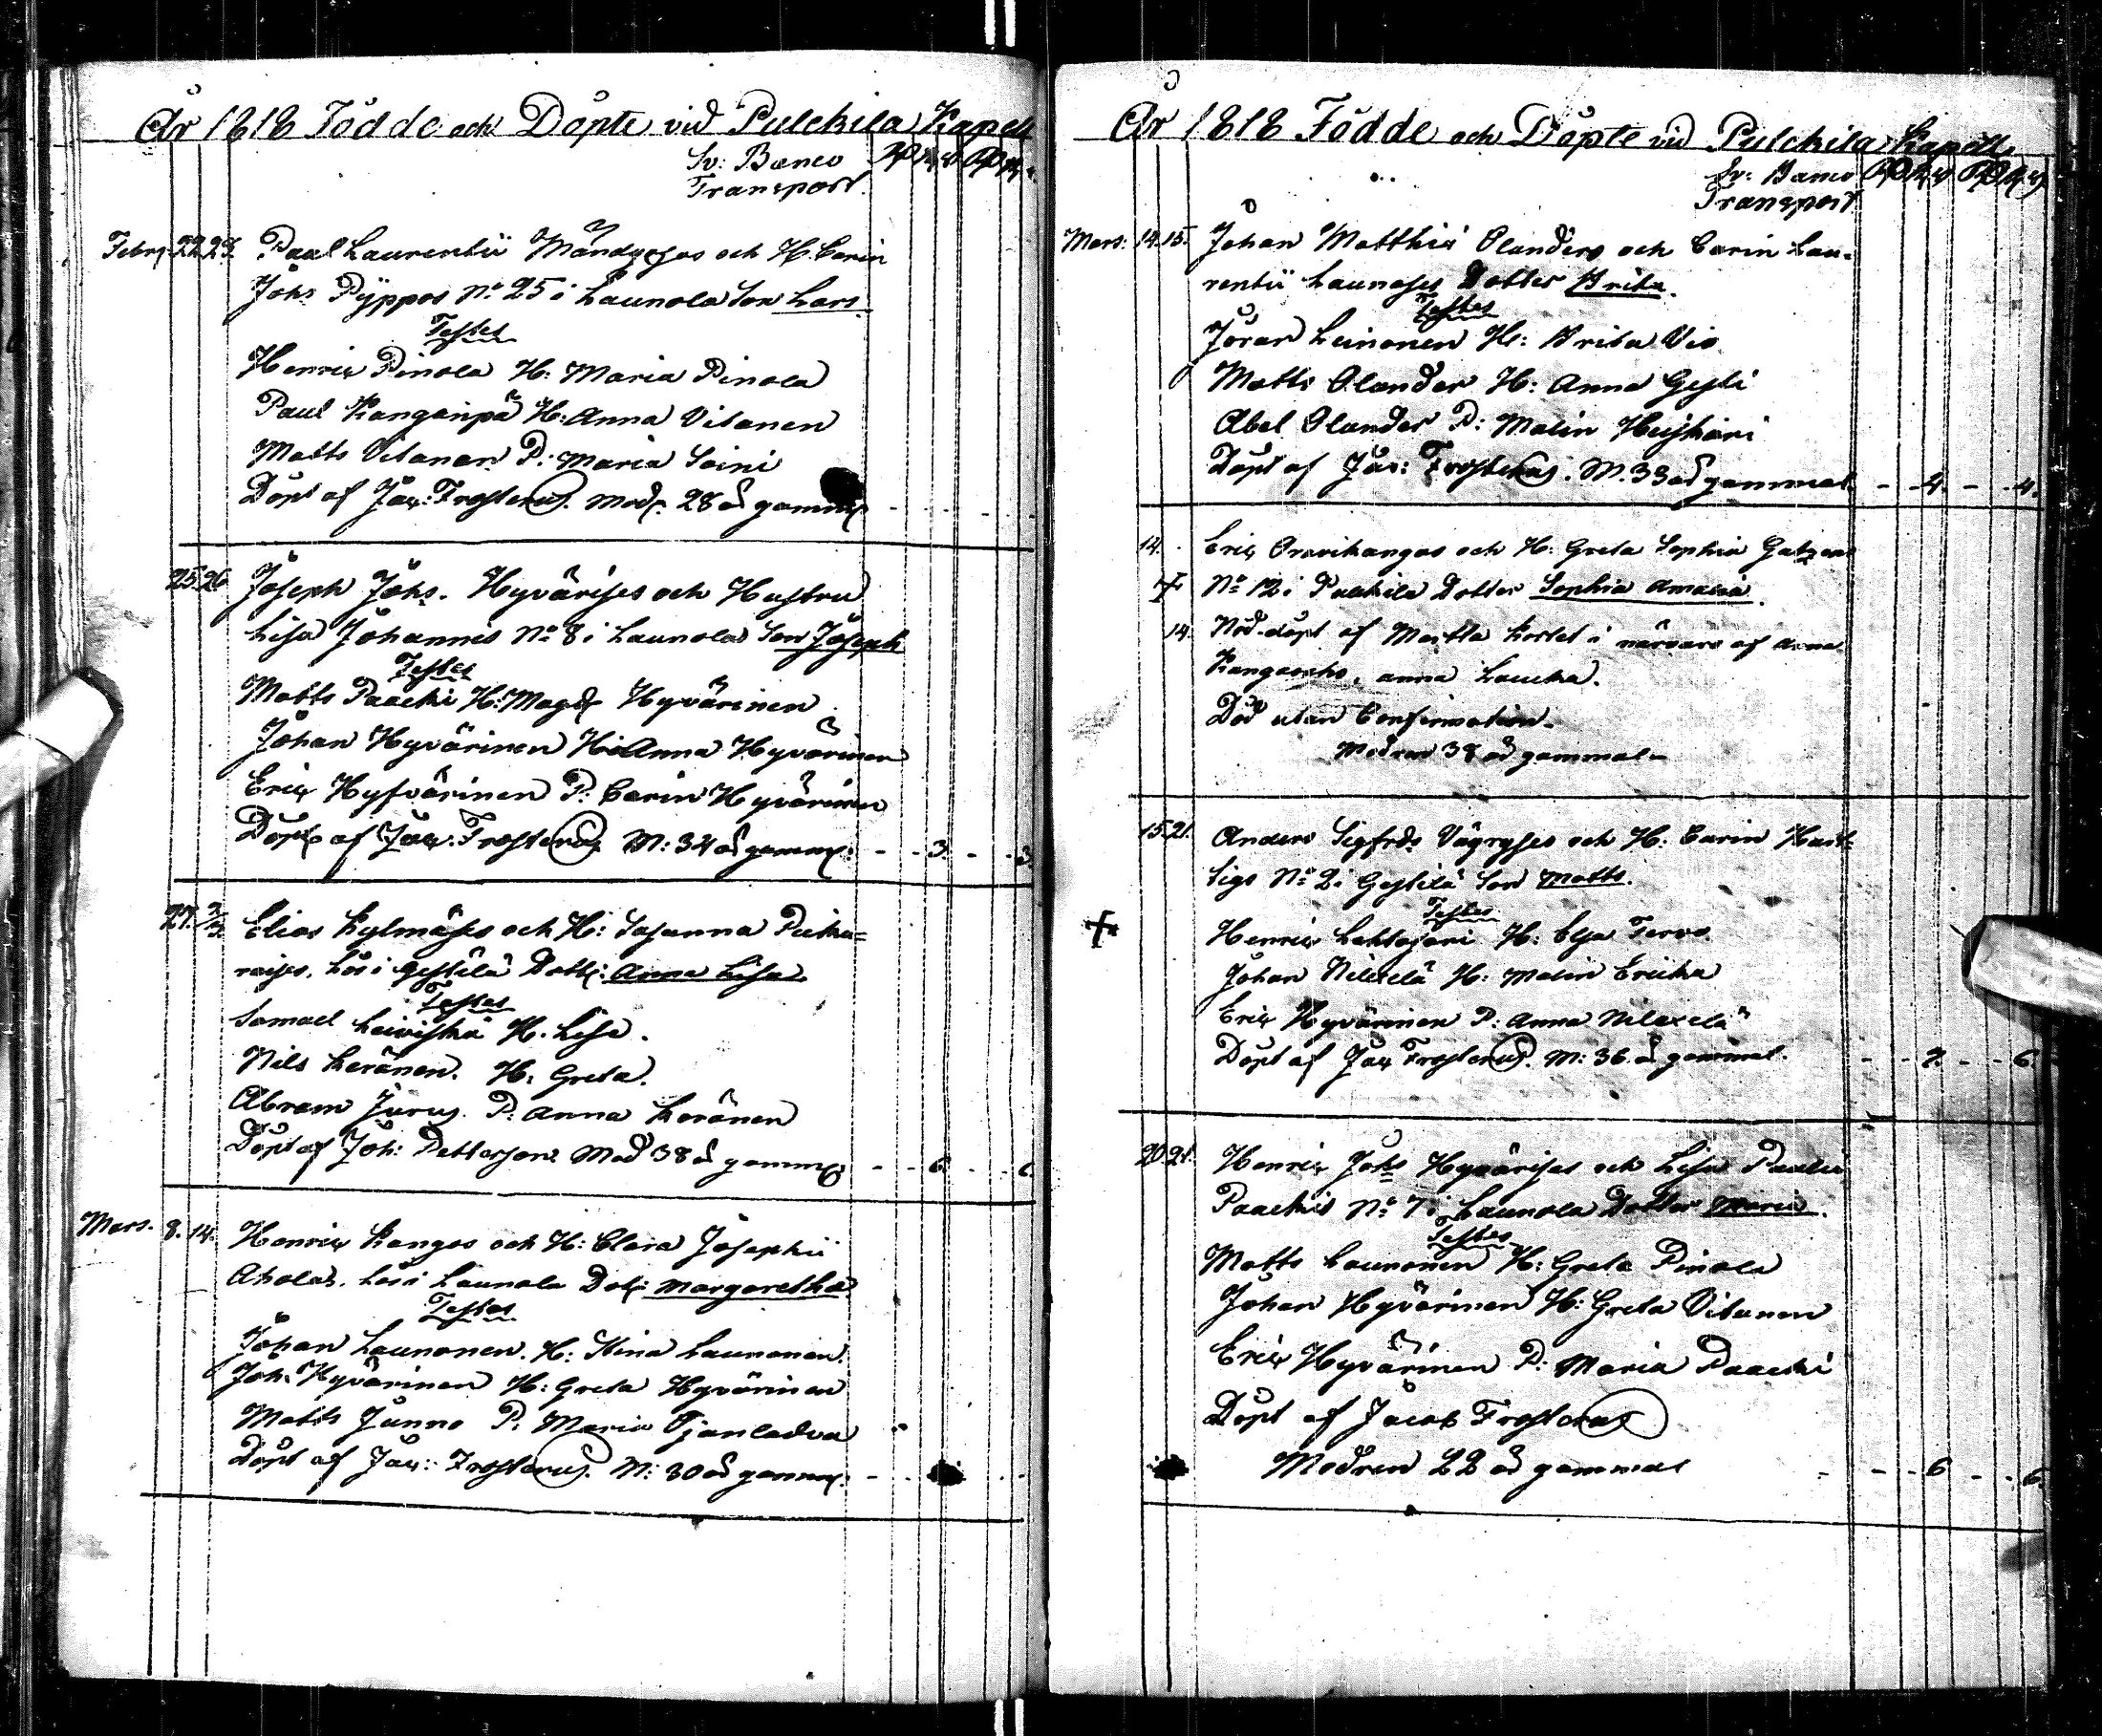 År 1818 Födde och Döpte vid Pulckila Kapell
Sv: Banco
Transport.
Febru: 22. 23. Paul Laurentii och H. Carin
Johs Pyppos No 25 i Launola Son Lars
Testes
Henric Pinola H: Maria Pinola
Paul Kanganpä H: Anna Vitanen
Matts Vitanen P: Maria Soini
Döpt af Jac: Frosterus. Mod. 28 år gamml
25. 26. Joseph Johs. Hyvärises och Hustru
Lisa Johannis No 8 i Launola Son Joseph
Testes
Matts Paacki H: Magd Hyvärinen
Johan Hyvärinen H: Anna Hyvärinen
Eric Hyfvärinen P: Carin Hyvärinen
Döpt af Jac. Frosterus M: 34 år gamml: - - 3. - - 3.
27. Elias Kylmäses och H: Susanna Piiku=
raises. Lös i Gestilä Dottr: Anna Lisa
Testes
Samuel Leiviskä H. Lisa.
Nils Keränen. H: Greta.
Abram Jurus. P: Anna Keränen
Döpt af Joh: Pettersson Mod 38 år gamml - - 6. - - 6.
Mars. 8. 14. Henric Kangas och H: Clara Josephii
Aholas. Lös i Launola Dotr Margaretha
Testes
Johan Launonen. H: Stina Launonen.
Joh: Hyvärinen H: Greta Hyvärinen
Matts Junno P: Maria Ojanladva
Döpt af Jac: Frosterus. M: 30 år gamml:
År 1818 Födde och Döpte vid Pulckila Kapell
Sv: Banco
Transport
Mars: 14. 15. Johan Matthiæ Olanders och Carin Lau=
rentii Launoses Dotter Brita.
Testes
Jöran Leinonen H: Brita Vio
Matts Olander H: Anna Gesti
Abel Olander P: Malin Heiskari
Döpt af Jac: Frosterus. M. 33 år gammal. - - 4. - - 4.
14. Eric Oravikangas och H: Greta Sophia
No 12 i Paakila Dotter Sophia Amalia.
14. Nöd-döpt af Martta i närvaro af Anna
Kangas, Anna Laucka.
Död utan Confirmation.
Modren 38 år gammal
15. 21. Anders Sigfrds och H: Carin
No 2 i Gestilä Son Matts.
Testes
Henric Lehtosari H: Elsa Tervo
Johan Nilexelä H: Malin Ericka
Eric Hyvärinen P: Anna Nilexelä
Döpt af Jac Frosterus. M: 36 år gammal.
20. 21. Henric Johs Hyvärises och Lisa
Paackis No 7 i Launola Dotter Maria.
Testes
Matts Launonen H: Greta Pinola
Johan Hyvärinen H: Greta Vitanen
Eric Hyvärinen P: Maria Paacki
Döpt af Jacob Frosterus
Modren 22 år gammal - - 6 - - 6.